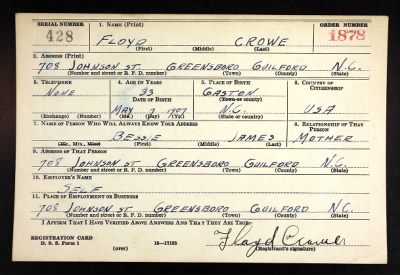 SERIAL NUMBER 1. NAME (Print) ORDER NUMBER
428 FLOYD CROWE 1878
(First) (Middle) (Last)
2. ADDRESS (Print)
708 JOHNSON ST. GREENSBORO GUILFORD N.C.
(Number and street or R. F. D. number) (Town) (County) (State)
3. TELEPHONE 4. AGE IN YEARS 5. PLACE OF BIRTH 6. COUNTRY OF CITIZENSHIP
NONE 33 GASTON
DATE OF BIRTH (Town or county)
MAY 7 1907 N.C. USA
(Exchange) (Number) (Mo.) (Day) (Yr.) (State or country)
7. NAME OF PERSON WHO WILL ALWAYS KNOW YOUR ADDRESS 8. RELATIONSHIP OF THAT PERSON
BESSIE JAMES MOTHER
(Mr., Mrs., Miss) (First) (Middle) (Last)
9. ADDRESS OF THAT PERSON
708 JOHNSON ST. GREENSBORO GUILFORD N.C.
(Number and street or R. F. D. number) (Town) (County) (State)
10. EMPLOYER'S NAME
SELF
11. PLACE OF EMPLOYMENT OR BUSINESS
708 JOHNSON ST. GREENSBORO GUILFORD N.C.
(Number and street or R. F. D. number) (Town) (County) (State)
I AFFIRM THAT I HAVE VERIFIED ABOVE ANSWERS AND THAT THEY ARE TRUE.
REGISTRATION CARD
D. S. S. Form 1 16—17105 Floyd Crowe
(over) (Registrant's signature)